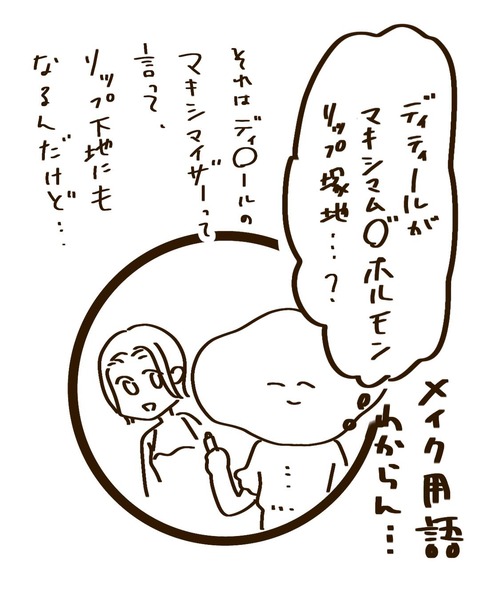 ディティールが
マキシマム〇゛ホルモン
リップ塚地…？
それはディ〇ールの
マキシマイザーって
言って、
リップ下地にも
なるんだけど…
メイク用語
わからん…